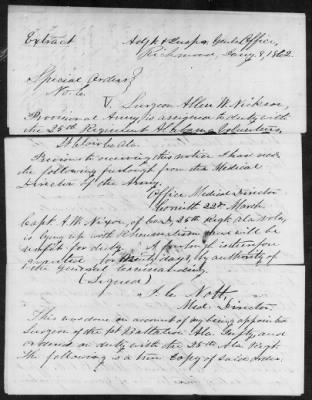 Extract Adjt & Insp. Genls Office,
Richmond, Jany 8, 1862.
Special Orders
No. 6.
V. Surgeon Allen W. Nickson,
Provisional Army, is assigned to duty with
the 25th Regiment Alabama Volunteers,
Previous to receiving this notice I had recd
the following furlough from the Medical
Director of the Army.
Office Medical Director
Corinth 22d March
Capt. A. W. Nixon, of Co. 25th Regt Ala Vols,
is lying up with Rheumatism and will be
unfit for duty. A furlough is therefore
granted for twenty days, by authority of
the General Commanding.
(Signed)
J. C. Nott,
Med. Director.
This was done on account of my being appointed
Surgeon of the 1st Battalion Ala Infty, and
ordered on duty with the 25th Ala Regt.
The following is a true copy of said order.